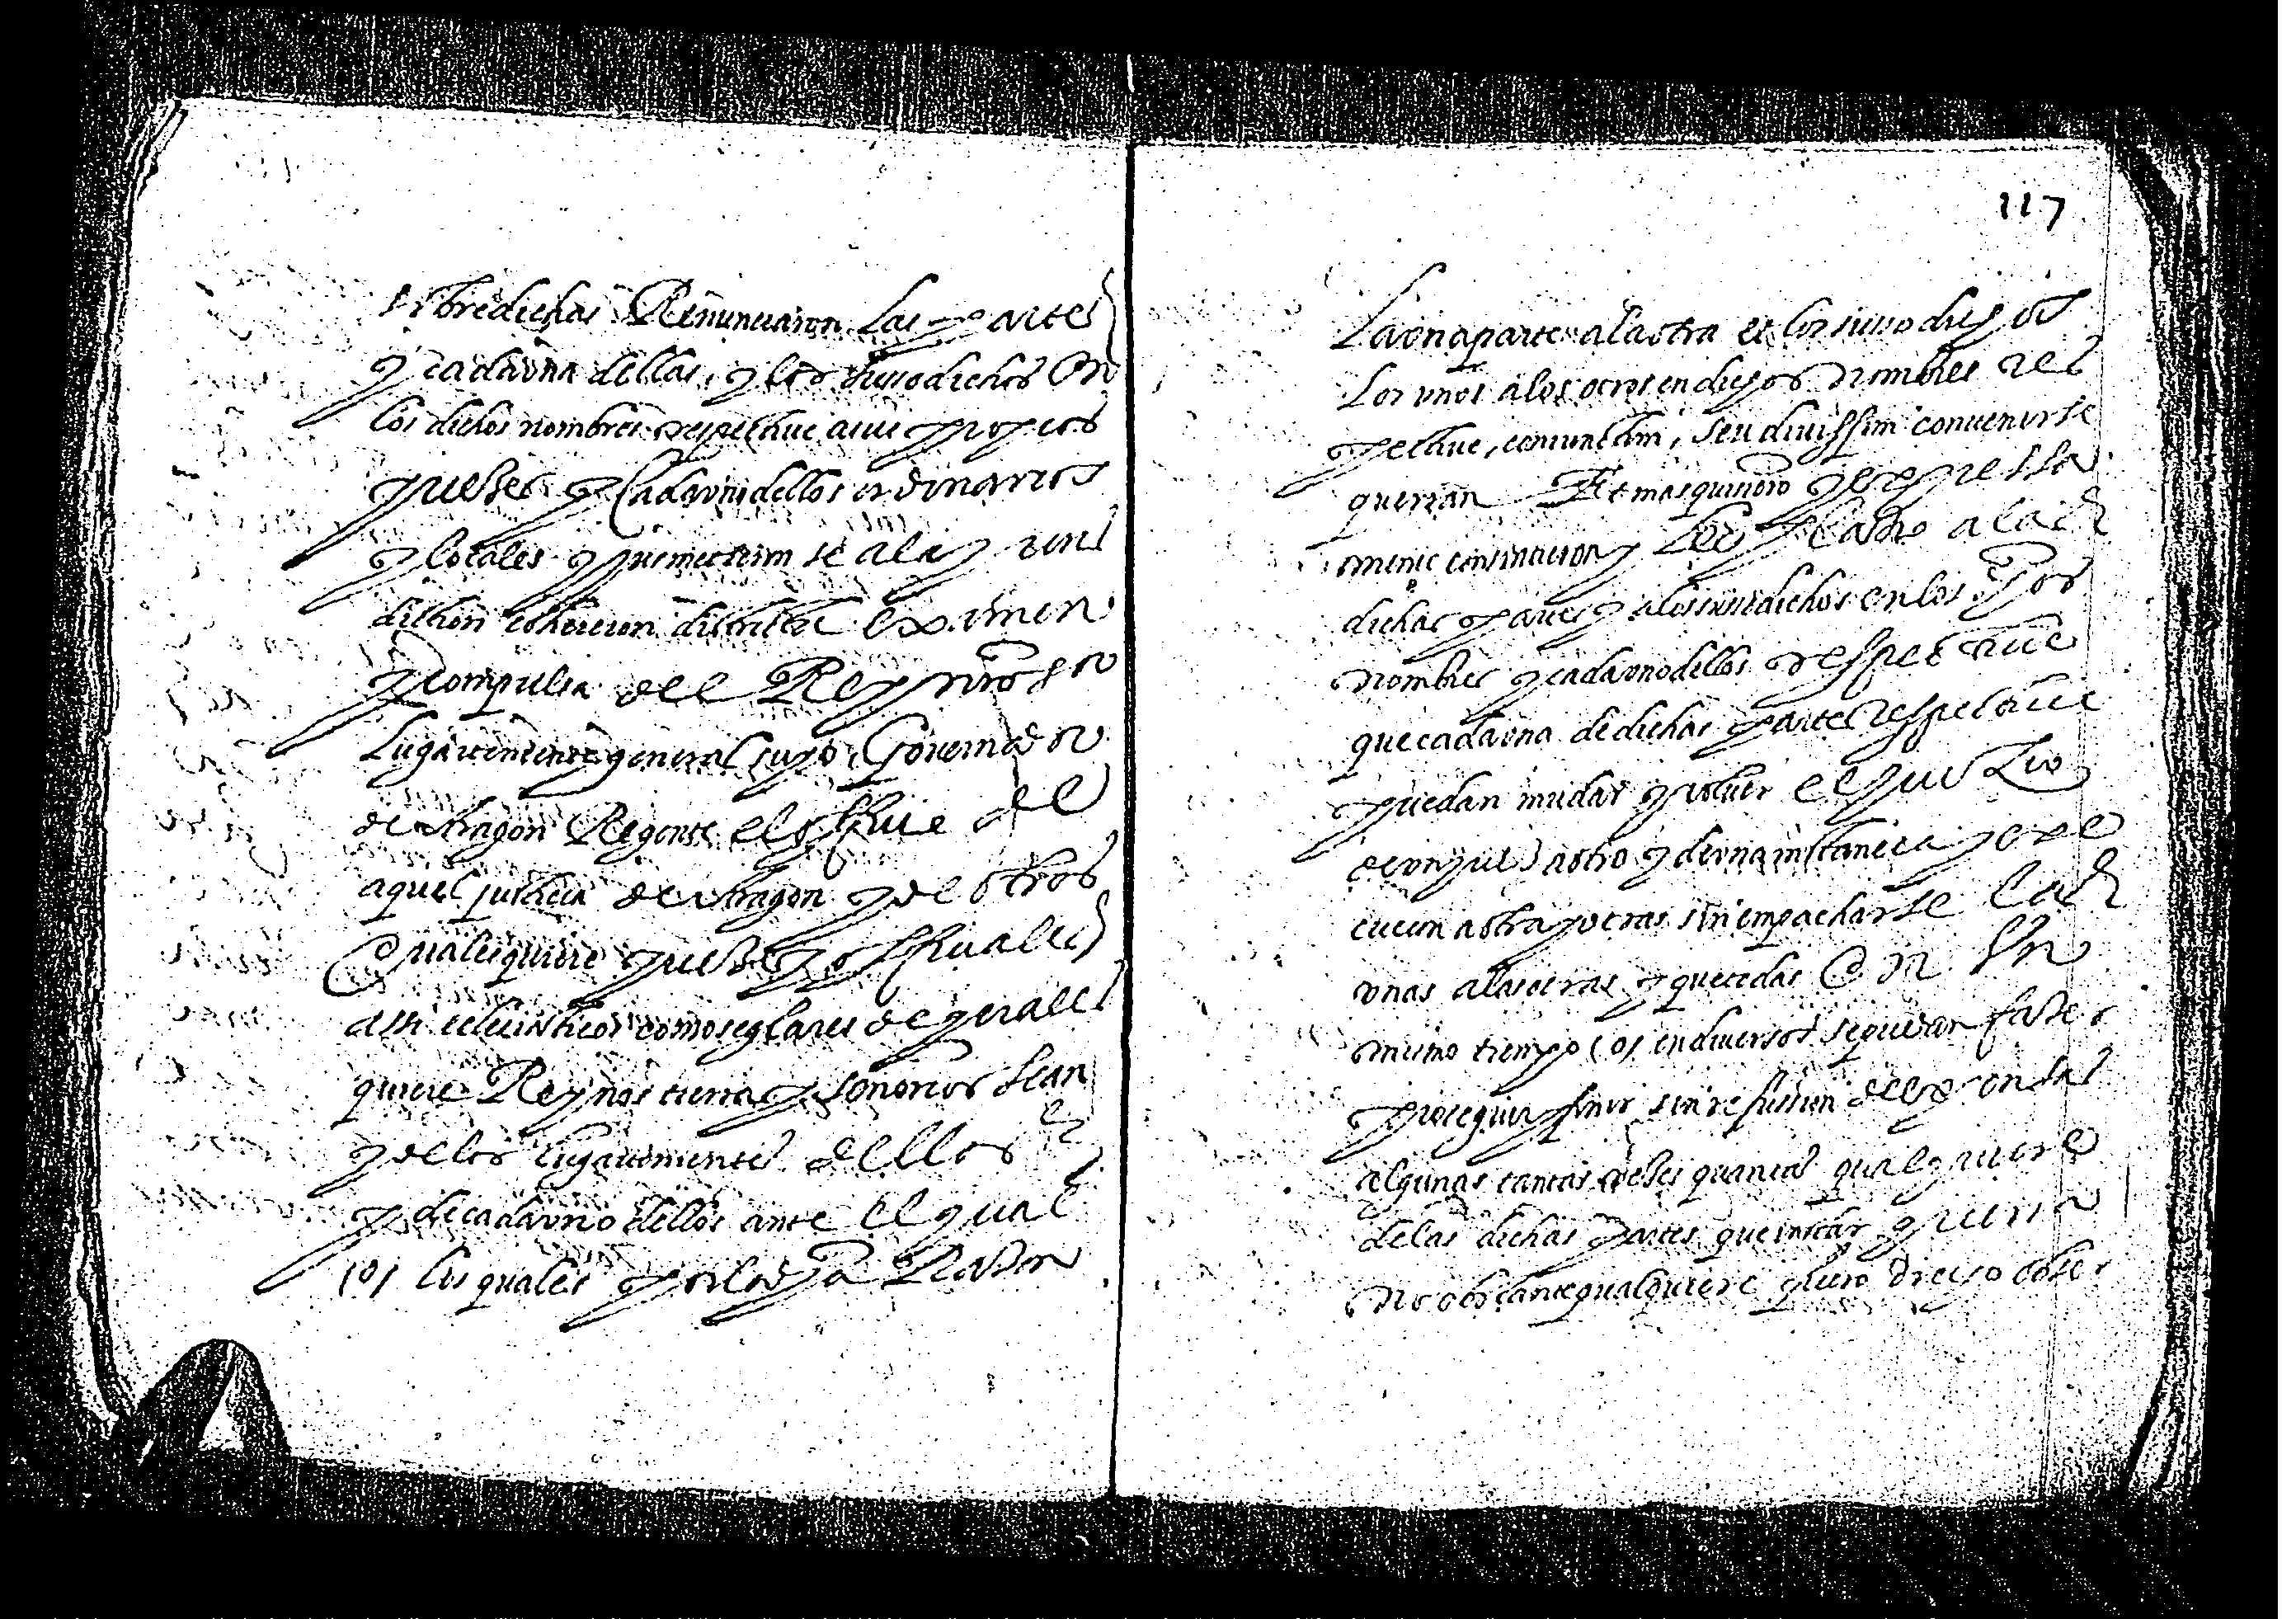 sobredichas Renunciaron las partes
y cada vna dellas, y los susso dichos en
los dichos nombres respectiue a sus propios
juezes y cada vno dellos ordinarios
y locales y susmetieron se a la juris
diction cohercion districtu examen
y compulsa del Rey nro sr
Lugarteniente general suyo, Gouernador
de Aragon Regente el officie de
aquel justicia de Aragon y de otros
qualesquiere juezes y officiales
assi eclesiasticos como seglares de quales
quiere Reynos tierras y senorios sean
y de los lugartenientes dellos
y de cada vno dellos ante el qual
(o) los quales por la dha Razon
117
La vna parte a la otra et los susso dichos
Los vnos a los otros en dichos nombres res
pectiue, coniunctim, seu diuissim conuenirse
querran Et mas quisieron y expressa
mente consintieron y fue licito a las
dichas partes y a los susso dichos en los dhos
nombres y cada vno dellos respectiue
que cada vna de dichas partes respectiue
puedan mudar y voluer el juizio
de vn juez a otro y de vna instancia y exe
cucion a otra y otras sin empacharse las
vnas a las otras y que todas en vn
mismo tiempo (o) en diuersos se puedan fazer
proseguir y finir sin refussion de expensas
algunas tantas vezes quantas qualquiere
de las dichas partes que instar querra
no obstante qualquiere fuero dreyo obser